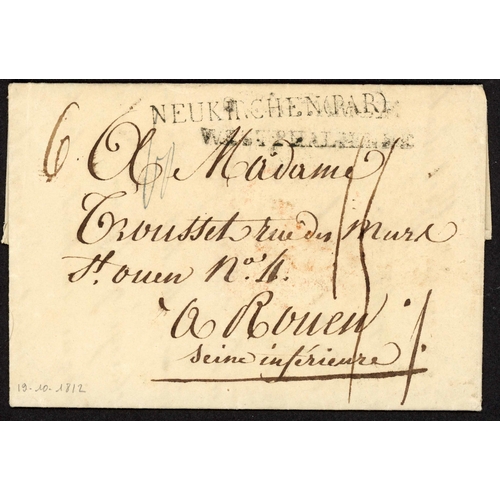 NEUKIRCHEN (PAR)
6. A Madame
Trousset rue des Murs
St. ouen No. 4.
a Rouen
Seine inférieure
19-10-1812